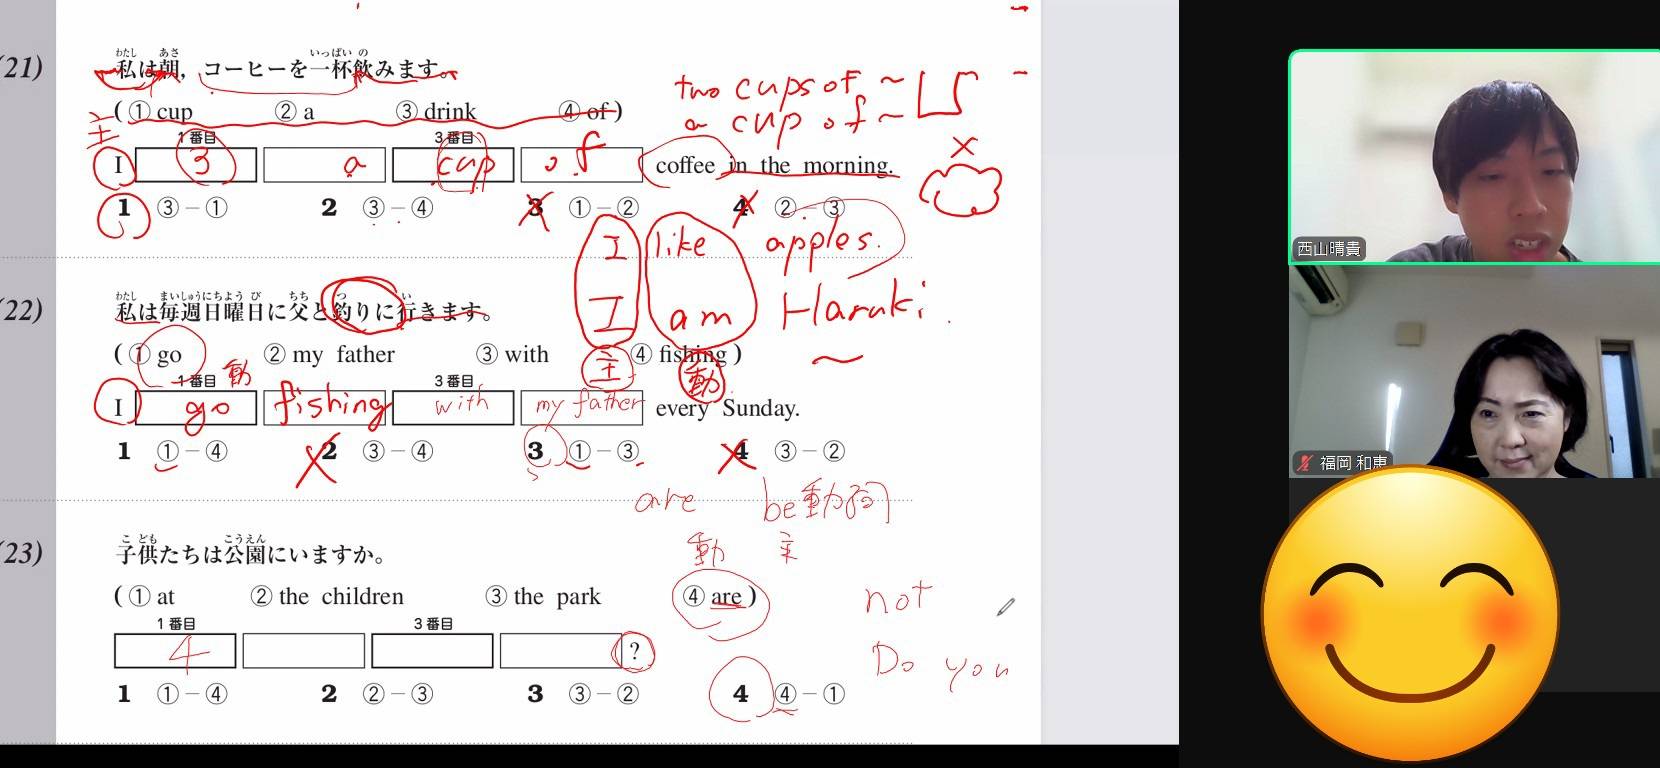 (21)
わたし あさ いっぱい の
私は朝，コーヒーを一杯飲みます。
two cups of ~
( ① cup ② a ③ drink ④ of )
a cup of ~
主
1番目 3番目
I 3 a cup of coffee in the morning.
1 ③－① 2 ③－④ 3 ①－② 4 ②－③
I like apples.
西山晴貴
(22)
わたし まいしゅうにちよう び ちち つ い
私は毎週日曜日に父と釣りに行きます。
I am Haruki.
( ① go ② my father ③ with ④ fishing )
主 動
1番目 動 3番目
I go fishing with my father every Sunday.
1 ①－④ 2 ③－④ 3 ①－③ 4 ③－②
福岡 和恵
are be動詞
(23)
こ ども こうえん
子供たちは公園にいますか。
動 主
( ① at ② the children ③ the park ④ are )
not
1番目 3番目
4 ?
Do you
1 ①－④ 2 ②－③ 3 ③－② 4 ④－①